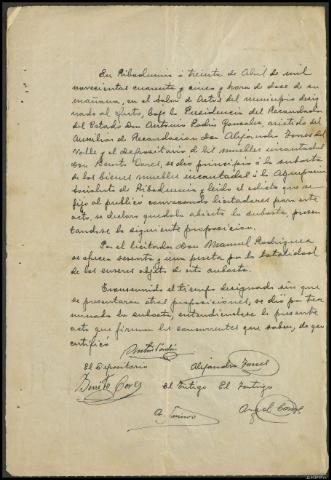 En Ribadumia á treinta de Abril de mil
novecientos cuarenta y cinco y hora de doce de su
mañana, en el Salon de Actos del municipio desig
nado al efecto, bajo la Presidencia del Recaudador
del Estado Don Antonio Padín Gonzalez, asistido del
Auxiliar de Recaudacion Don Alejandro Torres del
Valle y el depositario de los muebles incautados
Don Benito Cores, se dio principio á la subasta
de los bienes muebles incautados á la Agrupacion
Socialista de Ribadumia y leido el edicto que se
fijo al publico convocando licitadores para este
acto, se declaro quedaba abierta la subasta, presen
tandose la siguiente proposicion.
Por el licitador Don Manuel Rodriguez
se ofrece sesenta y una peseta por la totalidad
de los enseres objeto de esta subasta.
Transcurrido el tiempo designado sin que
se presentaran otras proposiciones, se dio por ter
minada la subasta, extendiendose la presente
acta que firman los concurrentes que saben, de que
certifico
Antonio Padín
El Depositario Alejandro Torres
Benito Cores El Testigo El Testigo
Angel Cores